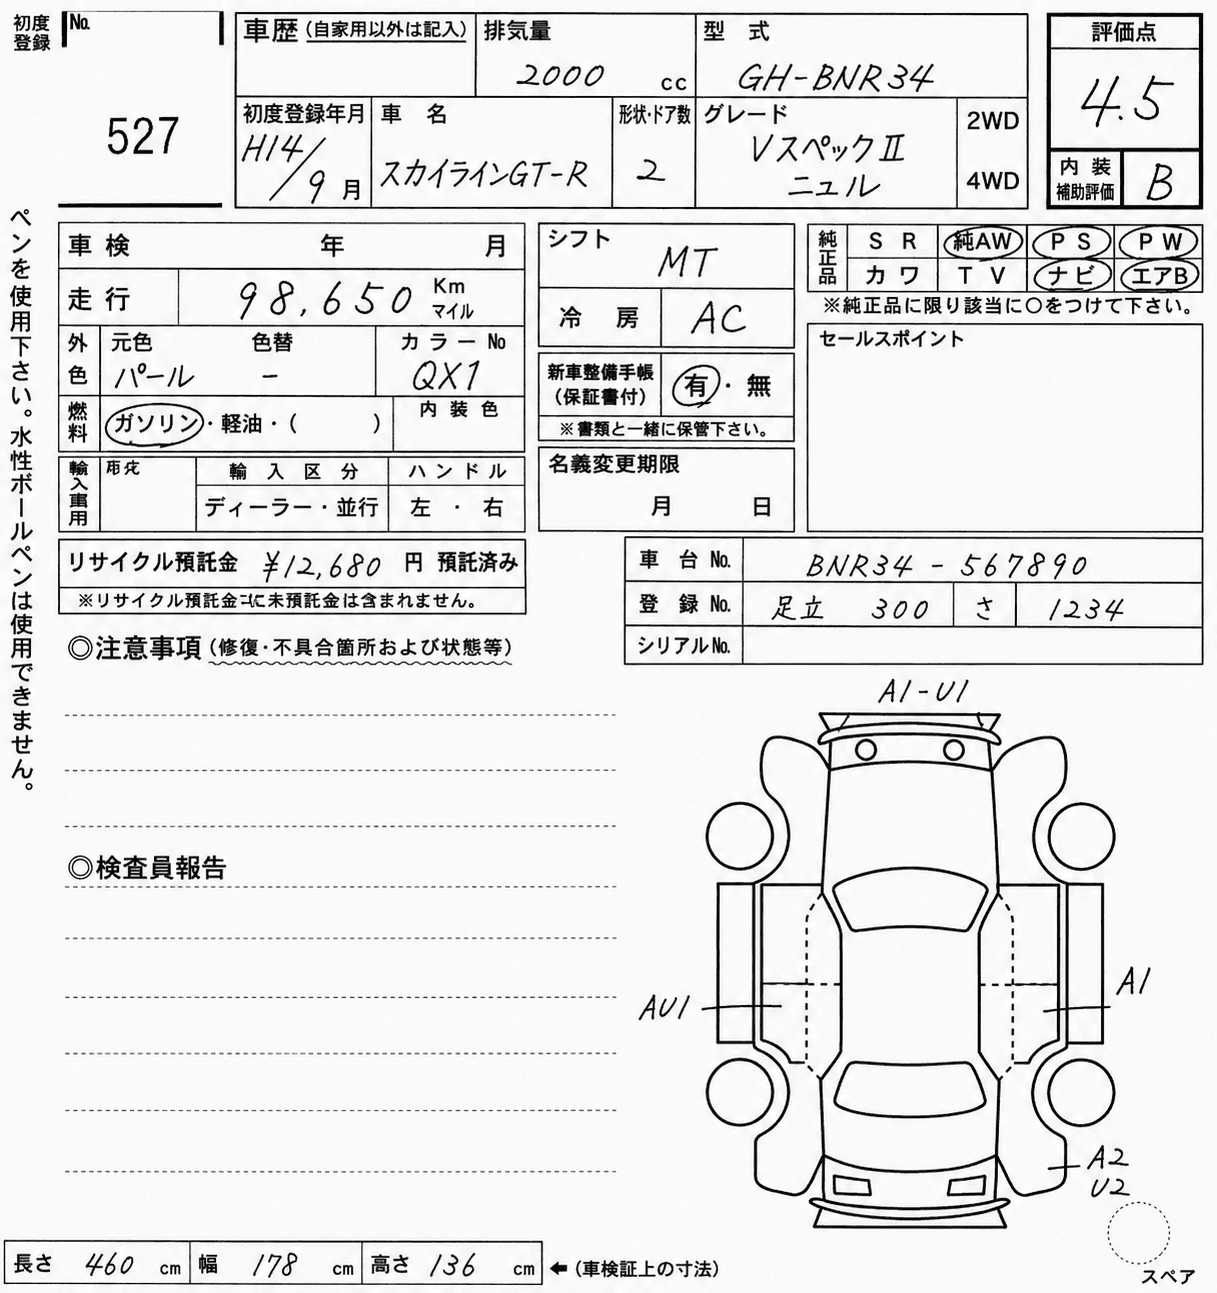 初度
登録
No.
527
車歴 (自家用以外は記入)
排気量
2000 cc
型 式
GH-BNR34
評価点
4.5
内 装
補助評価
B
初度登録年月
H14/9 月
車 名
スカイラインGT-R
形状・ドア数
2
グレード
VスペックⅡ
ニュル
2WD
4WD
ペンを使用下さい。水性ボールペンは使用できません。
車 検 年 月
走 行 98,650 Km
マイル
外
色
元色
パール
色替
-
カ ラ ー No
QX1
燃
料
ガソリン・軽油・( )
内 装 色
輸 入 区 分
ディーラー・並行
ハ ン ド ル
左 ・ 右
シフト
MT
冷 房
AC
新車整備手帳
(保証書付)
有・無
※書類と一緒に保管下さい。
名義変更期限
月 日
純
正
品
S R 純AW P S P W
カ ワ T V ナ ビ エアB
※純正品に限り該当に○をつけて下さい。
セールスポイント
リサイクル預託金 ¥12,680 円 預託済み
車 台 No. BNR34-567890
登 録 No. 足立 300 さ 1234
シリアルNo.
◎注意事項 (修復・不具合箇所および状態等)
◎検査員報告
A1-U1
AU1
A1
A2
U2
スペア
長さ 460 cm 幅 178 cm 高さ 136 cm ←(車検証上の寸法)